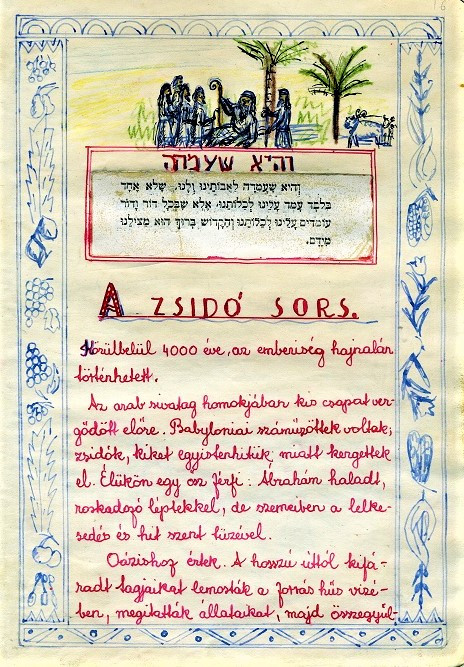 16
והיא שעמדה
וְהִיא שֶׁעָמְדָה לַאֲבוֹתֵינוּ וְלָנוּ. שֶׁלֹּא אֶחָד
בִּלְבַד עָמַד עָלֵינוּ לְכַלּוֹתֵנוּ. אֶלָּא שֶׁבְּכָל דּוֹר וָדוֹר
עוֹמְדִים עָלֵינוּ לְכַלּוֹתֵנוּ וְהַקָּדוֹשׁ בָּרוּךְ הוּא מַצִּילֵנוּ
מִיָּדָם.
A ZSIDÓ SORS.
Körülbelül 4000 éve, az emberiség hajnalán
történhetett.
Az arab sivatag homokjában kis csapat ver-
gődött előre. Babyloniai száműzöttek voltak;
zsidók, kiket egyistenhitük miatt kergettek
el. Élükön egy ősz férfi: Ábrahám haladt,
roskadozó léptekkel, de szemeiben a lelke-
sedés és hit szent tüzével.
Oázishoz értek. A hosszú úttól kifá-
radt tagjaikat lemosták a forrás hűs vizé-
ben, megitatták állataikat, majd összegyül-